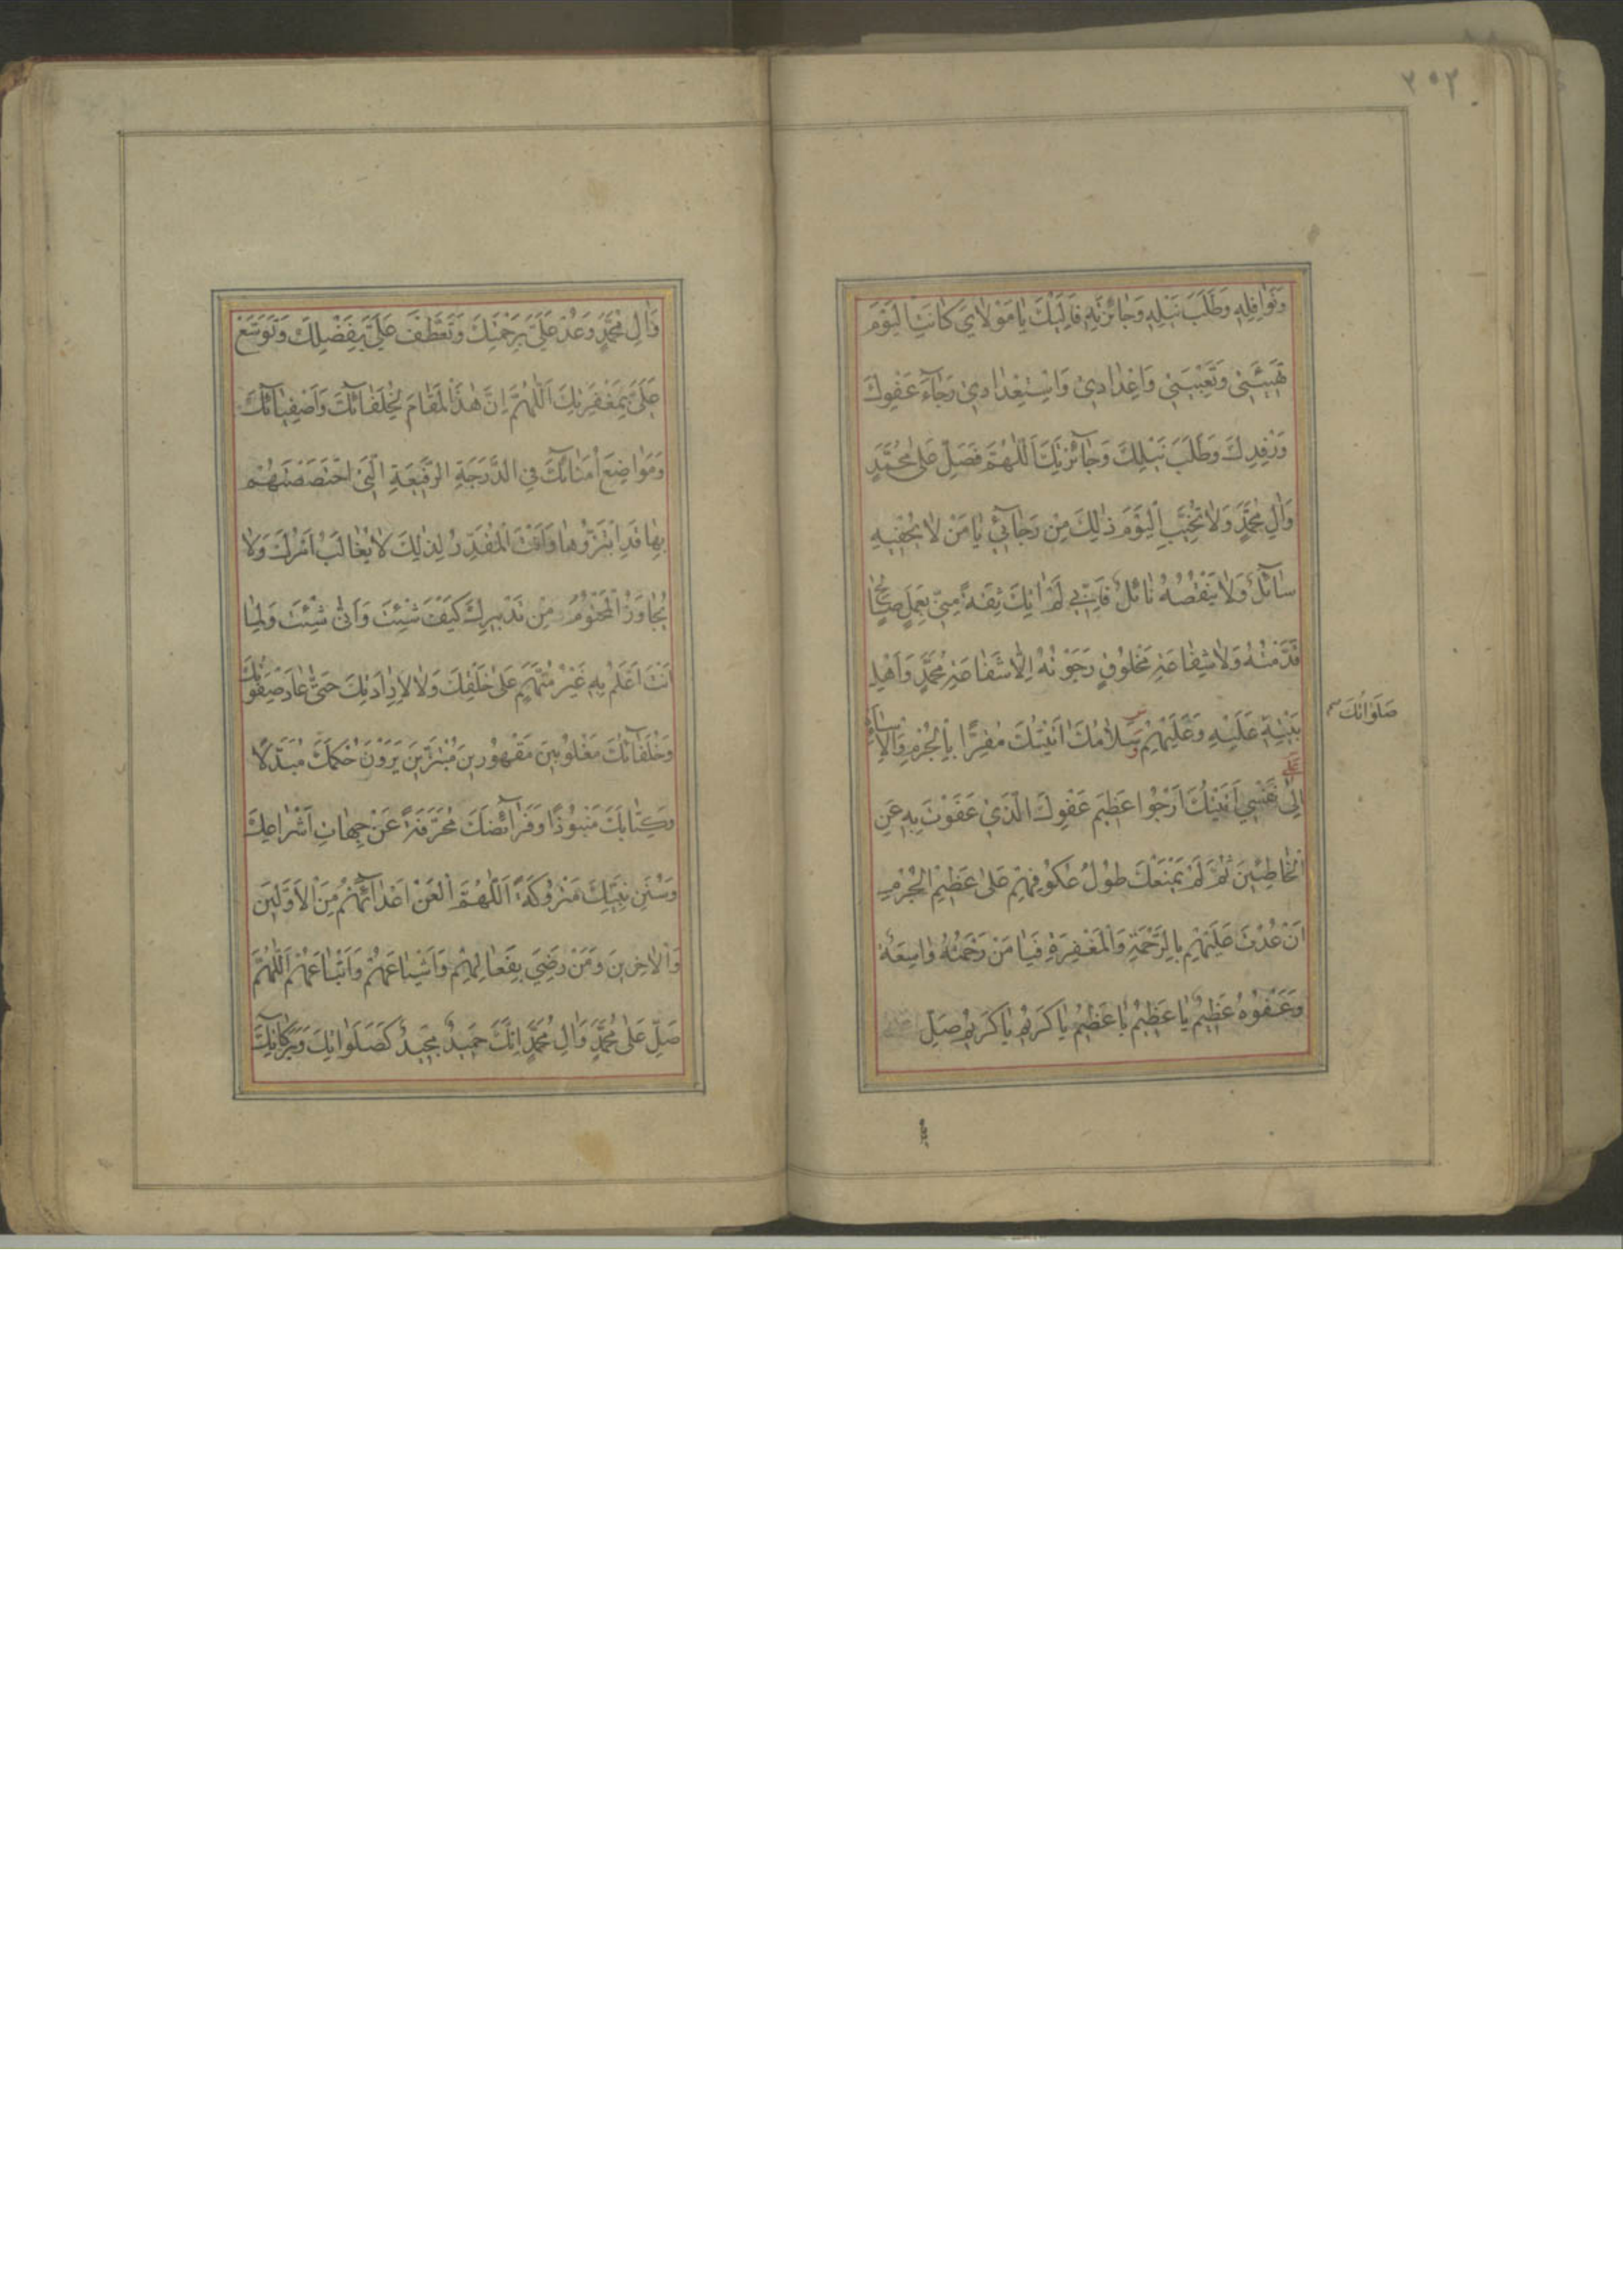 ٢٥٢
وَنَوَافِلِهِ وَطَلَبَ نَيْلِهِ وَجَائِزَتِهِ فَاِلَيْكَ يَا مَوْلَايَ كَانَتِ الْيَوْمَ
تَهْيِئَتِي وَتَعْبِيَتِي وَاِعْدَادِي وَاسْتِعْدَادِي رَجَاءَ عَفْوِكَ
وَرِفْدِكَ وَطَلَبَ نَيْلِكَ وَجَائِزَتِكَ اَللّٰهُمَّ فَصَلِّ عَلٰى مُحَمَّدٍ
وَاٰلِ مُحَمَّدٍ وَلَا تُخَيِّبِ الْيَوْمَ ذٰلِكَ مِنْ رَجَائِي يَا مَنْ لَا يُحْفِيهِ
سَائِلٌ وَلَا يَنْقُصُهُ نَائِلٌ فَاِنِّي لَمْ اٰتِكَ ثِقَةً مِنِّي بِعَمَلٍ صَالِحٍ
قَدَّمْتُهُ وَلَا شَفَاعَةِ مَخْلُوقٍ رَجَوْتُهُ اِلَّا شَفَاعَةَ مُحَمَّدٍ وَاَهْلِ
بَيْتِهِ عَلَيْهِ وَعَلَيْهِمْ وَسَلَامُكَ اَتَيْتُكَ مُقِرًّا بِالْجُرْمِ وَالْاِسَاءَةِ
صَلَوَاتُكَ
اِلٰى نَفْسِي اَتَيْتُكَ اَرْجُوا عَظِيمَ عَفْوِكَ الَّذِي عَفَوْتَ بِهِ عَنِ
الْخَاطِئِينَ ثُمَّ لَمْ يَمْنَعْكَ طُولُ عُكُوفِهِمْ عَلٰى عَظِيمِ الْجُرْمِ
اَنْ عُدْتَ عَلَيْهِمْ بِالرَّحْمَةِ وَالْمَغْفِرَةِ فَيَا مَنْ رَحْمَتُهُ وَاسِعَةٌ
وَعَفْوُهُ عَظِيمٌ يَا عَظِيمُ يَا عَظِيمُ يَا كَرِيمُ يَا كَرِيمُ صَلِّ
وَاٰلِ مُحَمَّدٍ وَعُدْ عَلَيَّ بِرَحْمَتِكَ وَتَعَطَّفْ عَلَيَّ بِفَضْلِكَ وَتَوَسَّعْ
عَلَيَّ بِمَغْفِرَتِكَ اَللّٰهُمَّ اِنَّ هٰذَا الْمَقَامَ لِخُلَفَائِكَ وَاَصْفِيَائِكَ
وَمَوَاضِعَ اُمَنَائِكَ فِي الدَّرَجَةِ الرَّفِيعَةِ الَّتِي اخْتَصَصْتَهُمْ
بِهَا قَدِ ابْتَزُّوهَا وَاَنْتَ الْمُقَدِّرُ لِذٰلِكَ لَا يُغَالَبُ اَمْرُكَ وَلَا
يُجَاوَزُ الْمَحْتُومُ مِنْ تَدْبِيرِكَ كَيْفَ شِئْتَ وَاَنّٰى شِئْتَ وَلِمَا
اَنْتَ اَعْلَمُ بِهِ غَيْرُ مُتَّهَمٍ عَلٰى خَلْقِكَ وَلَا لِاِرَادَتِكَ حَتّٰى عَادَ صِفْوَتُكَ
وَخُلَفَائُكَ مَغْلُوبِينَ مَقْهُورِينَ مُبْتَزِّينَ يَرَوْنَ حُكْمَكَ مُبَدَّلًا
وَكِتَابَكَ مَنْبُوذًا وَفَرَائِضَكَ مُحَرَّفَةً عَنْ جِهَاتِ اَشْرَاعِكَ
وَسُنَنِ نَبِيِّكَ مَتْرُوكَةً اَللّٰهُمَّ الْعَنْ اَعْدَائَهُمْ مِنَ الْاَوَّلِينَ
وَالْاٰخِرِينَ وَمَنْ رَضِيَ بِفَعَالِهِمْ وَاَشْيَاعَهُمْ وَاَتْبَاعَهُمْ اَللّٰهُمَّ
صَلِّ عَلٰى مُحَمَّدٍ وَاٰلِ مُحَمَّدٍ اِنَّكَ حَمِيدٌ مَجِيدٌ كَصَلَوَاتِكَ وَبَرَكَاتِكَ